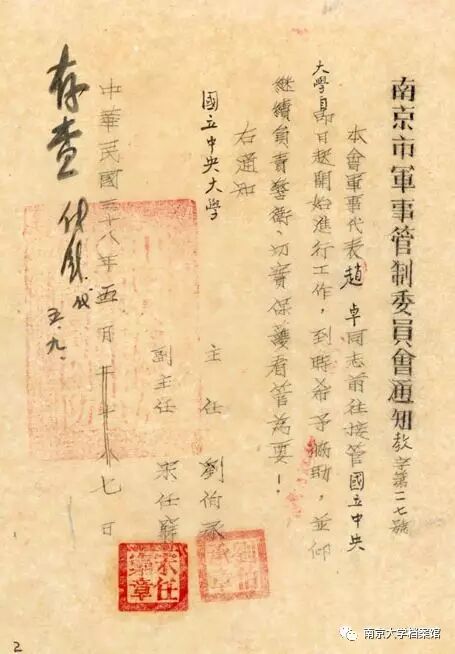 南京市軍事管制委員會通知 教字第二七號
本會軍事代表趙 卓同志前往接管國立中央
大學自即日起開始進行工作，到時希予協助，並仰
繼續負責警衛、切實保護看管為要！
右通知
國立中央大學
主 任 劉伯承
副主任 宋任窮
宋任窮章
中華民國三十八年五月七日
存查
五.九.
2
南京大学档案馆